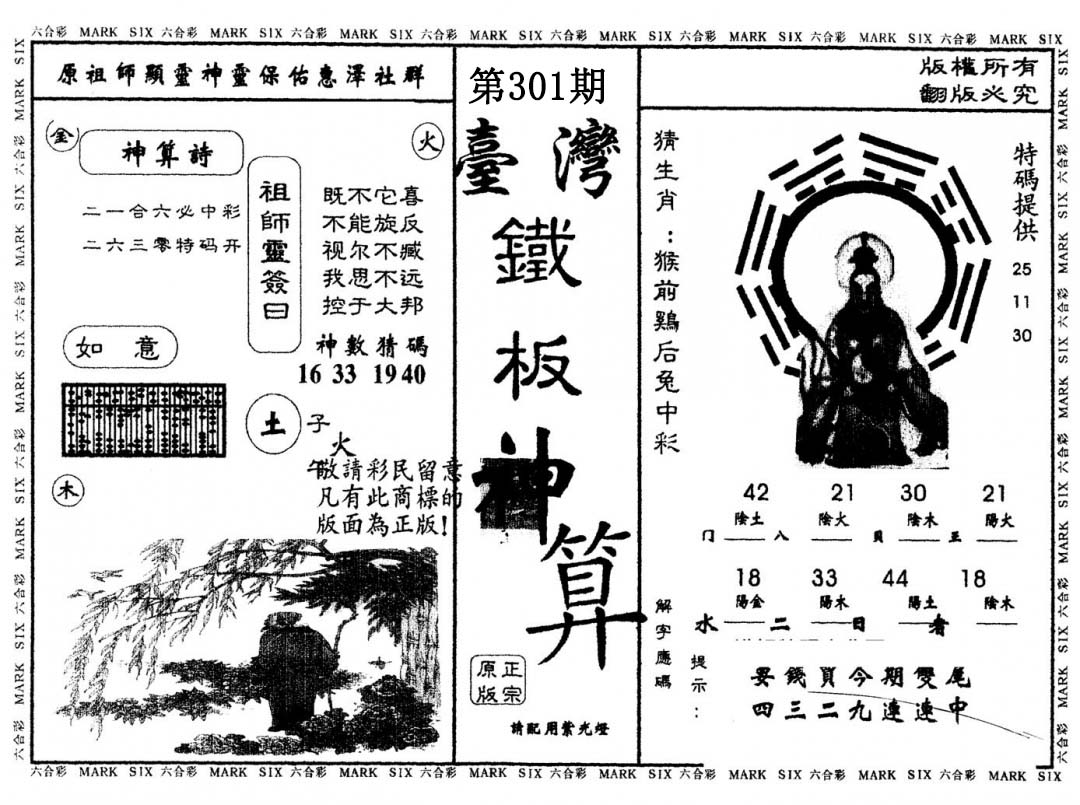 六合彩 MARK SIX 六合彩 MARK SIX 六合彩 MARK SIX 六合彩 MARK SIX 六合彩 MARK SIX 六合彩 MARK SIX 六合彩 MARK SIX 六合彩 MARK SIX
原祖師顯靈神靈保佑惠澤社群
金
火
神算詩
二一合六必中彩
二六三零特码开
祖師靈簽曰
既不它喜
不能旋反
视尔不臧
我思不远
控于大邦
如意
神數猜碼
16 33 19 40
土
子
火
午
木
敬請彩民留意
凡有此商標的
版面為正版!
第301期
臺灣
鐵
板
神
算
正宗
原版
請配用紫光燈
版權所有
翻版必究
猜生肖:猴前鷄后兔中彩
特碼提供
25
11
30
42 21 30 21
陰土 陰火 陰木 陽火
门 八 貝 王
18 33 44 18
陽金 陽木 陽土 陰木
水 二 日 者
解字應碼
提示:
要錢買今期雙尾
四三二九連連中
六合彩 MARK SIX 六合彩 MARK SIX 六合彩 MARK SIX 六合彩 MARK SIX 六合彩 MARK SIX 六合彩 MARK SIX 六合彩 MARK SIX 六合彩 MARK SIX